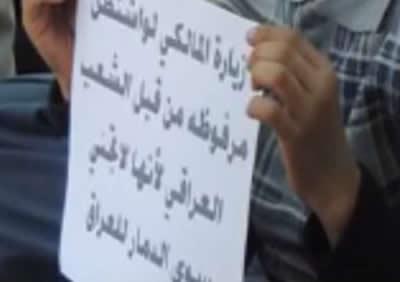 زيارة المالكي لواشنطن
مرفوظه من قبل الشعب
العراقي لأنها لا تجني
سوى الدمار للعراق